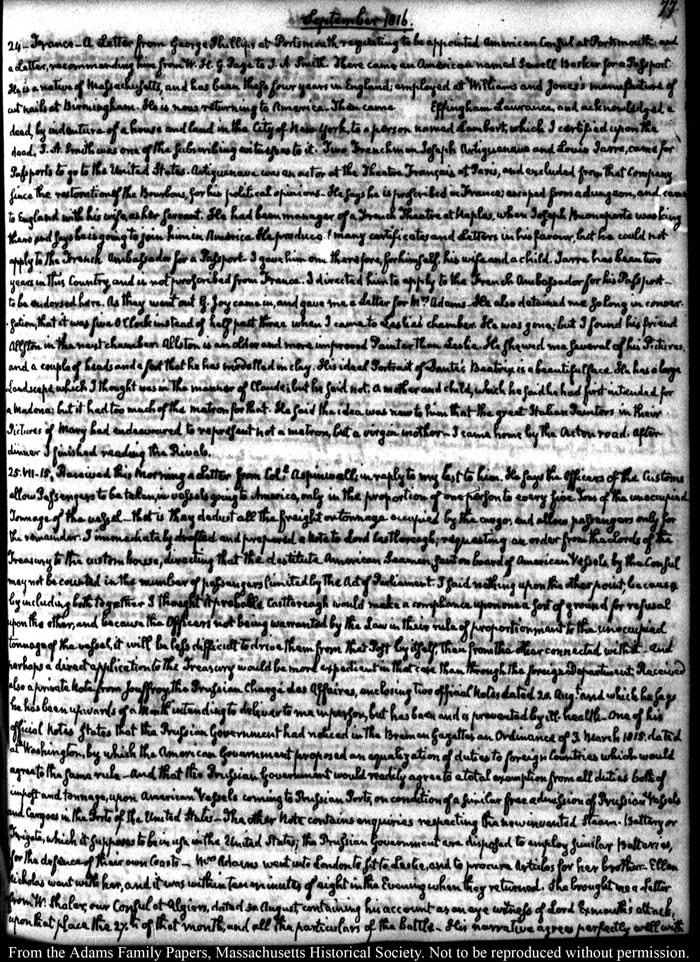 77
September 1816.
24 – France – A Letter from George Phillips at Portsmouth requesting to be appointed American Consul at Portsmouth: and
a Letter, recommending him from W. H. G. Page to J. A. Smith. There came an American named Sewell Barker for a Passport.
He is a native of Massachusetts, and has been these four years in England; employed at Williams and Jones's manufacture of
cut nails at Birmingham. He is now returning to America. Then came Effingham Lawrance, and acknowledged a
deed, by indenture of a house and land in the City of New York, to a person named Lambert, which I certified upon the
deed. J. A. Smith was one of the subscribing witnesses to it. Two Frenchmen Joseph Artiguenave and Louis Jarre, came for
Passports to go to the United States. Artiguenave was an actor at the Theatre Français, at Paris, and excluded from that Company
since the restoration of the Bourbons, for his political opinions. He says he is proscribed in France; escaped from a dungeon, and came
to England with his wife, as her servant. He had been manager of a French Theatre at Naples, when Joseph Buonaparte was king
there and says he is going to join him in America. He produced many certificates and Letters in his favour, but he could not
apply to the French Ambassador for a Passport. I gave him one therefore, for himself, his wife and a child. Jarre has been two
years in this Country, and is not proscribed from France. I directed him to apply to the French Ambassador for his Passport –
to be endorsed here. As they went out G. Joy came in, and gave me a Letter for Mrs Adams. He also detained me so long in conver-
sation, that it was five O'Clock instead of half past three when I came to Leslie's chamber. He was gone; but I found his friend
Allston in the next chamber. Allston is an older and more improved Painter than Leslie. He shewed me several of his Pictures,
and a couple of heads and a foot that he has modelled in clay. His ideal Portrait of Dante's Beatrix is a beautiful face. He has a large
Landscape, which I thought was in the manner of Claude; but he said not. A mother and child, which he said he had first intended for
a Madona; but it had too much of the matron for that. He said the idea was new to him that the great Italian Painters in their
Pictures of Mary had endeavoured to represent not a matron, but a virgin mother – I came home by the Acton road. After
dinner I finished reading the Rivals.
25. VII-15. Received this Morning a Letter from Colo. Aspinwall; in reply to my last to him. He says the Officers of the Customs
allow Passengers to be taken, in vessels going to America, only in the proportion of one person to every five Tons of the unoccupied
Tonnage of the vessel – that is they deduct all the freight or tonnage occupied by the cargo, and allow passengers only for
the remainder. I immediately drafted and prepared a Note to Lord Castlereagh; requesting an order from the Lords of the
Treasury to the custom house, directing that the destitute American Seamen, sent on board of American Vessels, by the Consul
may not be counted in the number of passengers limited by the Act of Parliament. I said nothing upon the other point, because
by including both together I thought it probable Castlereagh would make a compliance upon one a sort of ground for refusal
upon the other, and because the Officers not being warranted by the Law in their rule of proportionment to the unoccupied
tonnage of the vessel, it will be less difficult to drive them from that Post by itself, than from the other connected with it. And
perhaps a direct application to the Treasury would be more expedient in that case than through the foreign Department. Received
also a private Note from Jouffroy, the Prussian Chargé des Affaires, enclosing two official Notes dated 20 Augt. and which he says
he has been upwards of a Month intending to deliver to me in person, but has been and is prevented by ill-health – One of his
official Notes states that the Prussian Government had noticed in the Bremen Gazettes an Ordinance of 3 March 1815. dated
at Washington, by which the American Government proposed an equalization of duties to foreign Countries which would
agree to the same rule – And that the Prussian Government would readily agree to a total exemption from all duties both of
impost and tonnage, upon American Vessels coming to Prussian Ports, on condition of a similar free admission of Prussian Vessels
and Cargoes in the Ports of the United States – The other Note contains enquiries respecting the new invented Steam-Battery or
Frigate, which it supposes to be in use in the United States; the Prussian Government are disposed to employ similar Batteries,
for the defence of their own Coasts – Mrs Adams went into London to sit to Leslie, and to procure Articles for her brother. Ellen
Nicholas went with her, and it was within ten minutes of eight in the Evening when they returned. She brought me a Letter
from W. Shaler, our Consul at Algiers, dated 30 August, containing his account as an eye witness of Lord Exmouth's attack,
upon that place the 27th of that month, and all the particulars of the battle – His narrative agrees perfectly well with
From the Adams Family Papers, Massachusetts Historical Society. Not to be reproduced without permission.